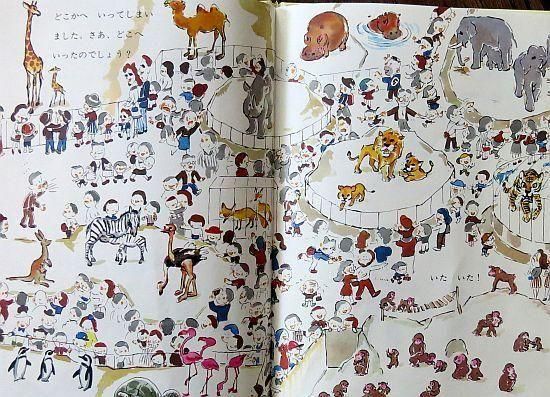 どこかへ いってしまい
ました。さあ、どこへ
いったのでしょう？
いた いた！